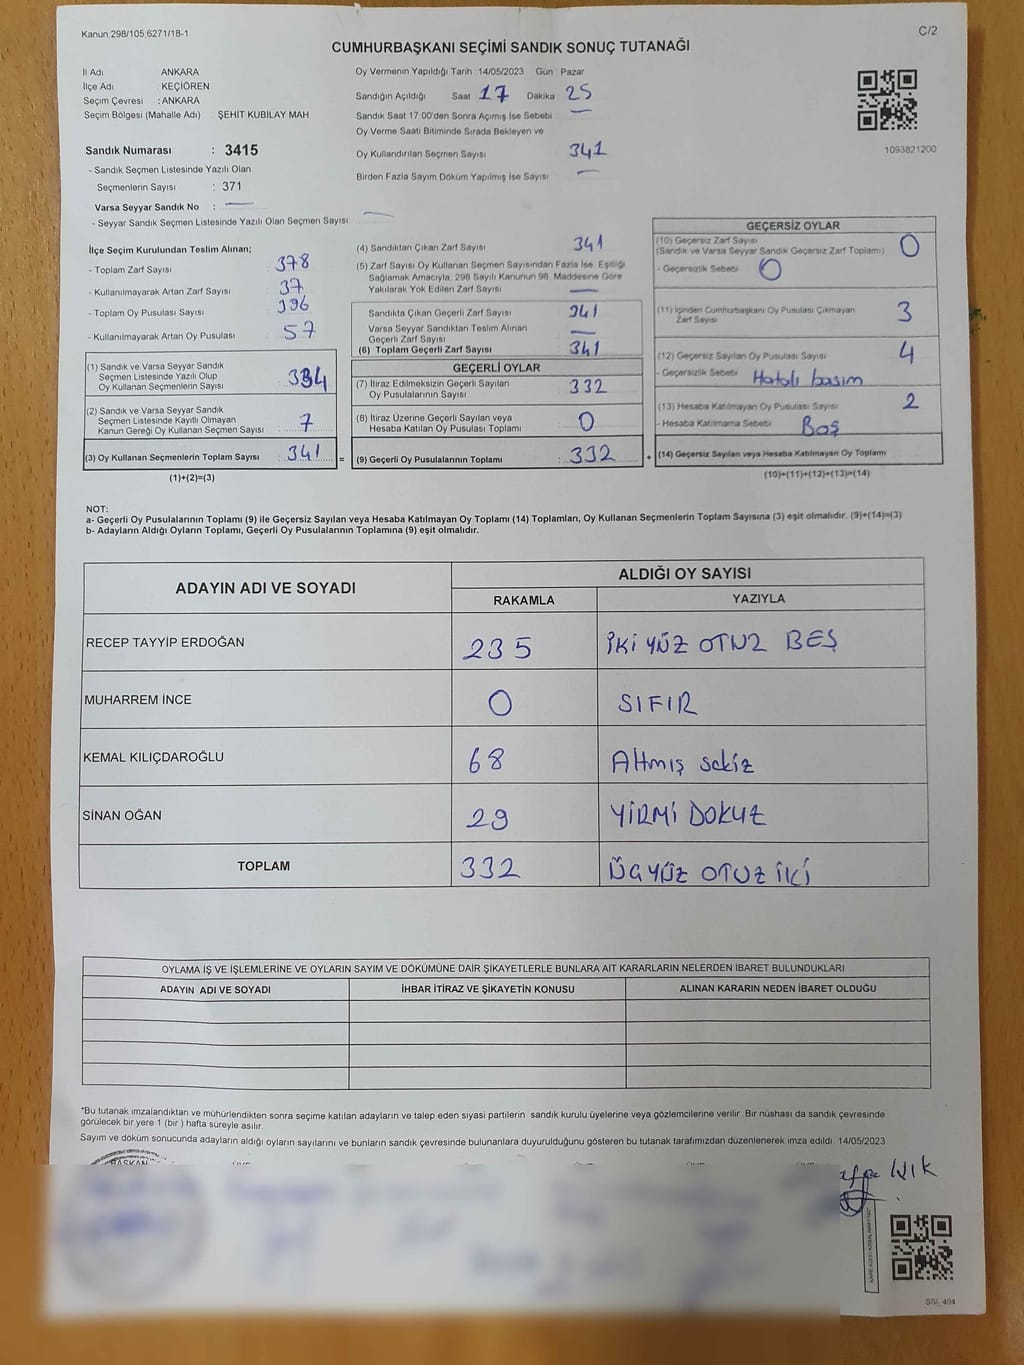 Kanun.298/105,6271/18-1
C/2
CUMHURBAŞKANI SEÇİMİ SANDIK SONUÇ TUTANAĞI
İl Adı ANKARA
İlçe Adı KEÇİÖREN
Seçim Çevresi : ANKARA
Seçim Bölgesi (Mahalle Adı) : ŞEHİT KUBİLAY MAH
Sandık Numarası : 3415
- Sandık Seçmen Listesinde Yazılı Olan
Seçmenlerin Sayısı : 371
Varsa Seyyar Sandık No :
- Seyyar Sandık Seçmen Listesinde Yazılı Olan Seçmen Sayısı
Oy Vermenin Yapıldığı Tarih 14/05/2023 Gün Pazar
Sandığın Açıldığı Saat 17 Dakika 25
Sandık Saat 17 00'den Sonra Açımış İse Sebebi
Oy Verme Saati Bitiminde Sırada Bekleyen ve
Oy Kullandırılan Seçmen Sayısı 341
Birden Fazla Sayım Döküm Yapılmış İse Sayısı
1093821200
İlçe Seçim Kurulundan Teslim Alınan;
- Toplam Zarf Sayısı 378
- Kullanılmayarak Artan Zarf Sayısı 37
- Toplam Oy Pusulası Sayısı 396
- Kullanılmayarak Artan Oy Pusulası 57
(1) Sandık ve Varsa Seyyar Sandık
Seçmen Listesinde Yazılı Olup
Oy Kullanan Seçmenlerin Sayısı 334
(2) Sandık ve Varsa Seyyar Sandık
Seçmen Listesinde Kayıtlı Olmayan
Kanun Gereği Oy Kullanan Seçmen Sayısı 7
(3) Oy Kullanan Seçmenlerin Toplam Sayısı 341 =
(1)+(2)=(3)
(4) Sandıktan Çıkan Zarf Sayısı 341
(5) Zarf Sayısı Oy Kullanan Seçmen Sayısından Fazla İse, Eşitliği
Sağlamak Amacıyla, 298 Sayılı Kanunun 98. Maddesine Göre
Yakılarak Yok Edilen Zarf Sayısı
Sandıkta Çıkan Geçerli Zarf Sayısı 341
Varsa Seyyar Sandıktan Teslim Alınan
Geçerli Zarf Sayısı
(6) Toplam Geçerli Zarf Sayısı 341
GEÇERLİ OYLAR
(7) İtiraz Edilmeksizin Geçerli Sayılan
Oy Pusulalarının Sayısı 332
(8) İtiraz Üzerine Geçerli Sayılan veya
Hesaba Katılan Oy Pusulası Toplamı 0
(9) Geçerli Oy Pusulalarının Toplamı : 332 +
GEÇERSİZ OYLAR
(10) Geçersiz Zarf Sayısı
(Sandık ve Varsa Seyyar Sandık Geçersiz Zarf Toplamı) 0
- Geçersizlik Sebebi 0
(11) İçinden Cumhurbaşkanı Oy Pusulası Çıkmayan
Zarf Sayısı 3
(12) Geçersiz Sayılan Oy Pusulası Sayısı 4
- Geçersizlik Sebebi Hatalı basim
(13) Hesaba Katılmayan Oy Pusulası Sayısı 2
- Hesaba Katılmama Sebebi Boş
(14) Geçersiz Sayılan veya Hesaba Katılmayan Oy Toplamı
(10)+(11)+(12)+(13)=(14)
NOT:
a- Geçerli Oy Pusulalarının Toplamı (9) ile Geçersiz Sayılan veya Hesaba Katılmayan Oy Toplamı (14) Toplamları, Oy Kullanan Seçmenlerin Toplam Sayısına (3) eşit olmalıdır. (9)+(14)=(3)
b- Adayların Aldığı Oyların Toplamı, Geçerli Oy Pusulalarının Toplamına (9) eşit olmalıdır.
ADAYIN ADI VE SOYADI
ALDIĞI OY SAYISI
RAKAMLA YAZIYLA
RECEP TAYYİP ERDOĞAN 235 İKİ YÜZ OTUZ BEŞ
MUHARREM İNCE 0 SIFIR
KEMAL KILIÇDAROĞLU 68 Altmış sekiz
SİNAN OĞAN 29 YİRMİ DOKUZ
TOPLAM 332 ÜÇ YÜZ OTUZ İKİ
OYLAMA İŞ VE İŞLEMLERİNE VE OYLARIN SAYIM VE DÖKÜMÜNE DAİR ŞİKAYETLERLE BUNLARA AİT KARARLARIN NELERDEN İBARET BULUNDUKLARI
ADAYIN ADI VE SOYADI İHBAR İTİRAZ VE ŞİKAYETİN KONUSU ALINAN KARARIN NEDEN İBARET OLDUĞU
*Bu tutanak imzalandıktan ve mühürlendikten sonra seçime katılan adayların ve talep eden siyasi partilerin sandık kurulu üyelerine veya gözlemcilerine verilir .Bir nüshası da sandık çevresinde
görülecek bir yere 1 (bir ) hafta süreyle asılır.
Sayım ve döküm sonucunda adayların aldığı oyların sayılarını ve bunların sandık çevresinde bulunanlara duyurulduğunu gösteren bu tutanak tarafımızdan düzenlenerek imza edildi. 14/05/2023
BAŞKAN
SSI_404